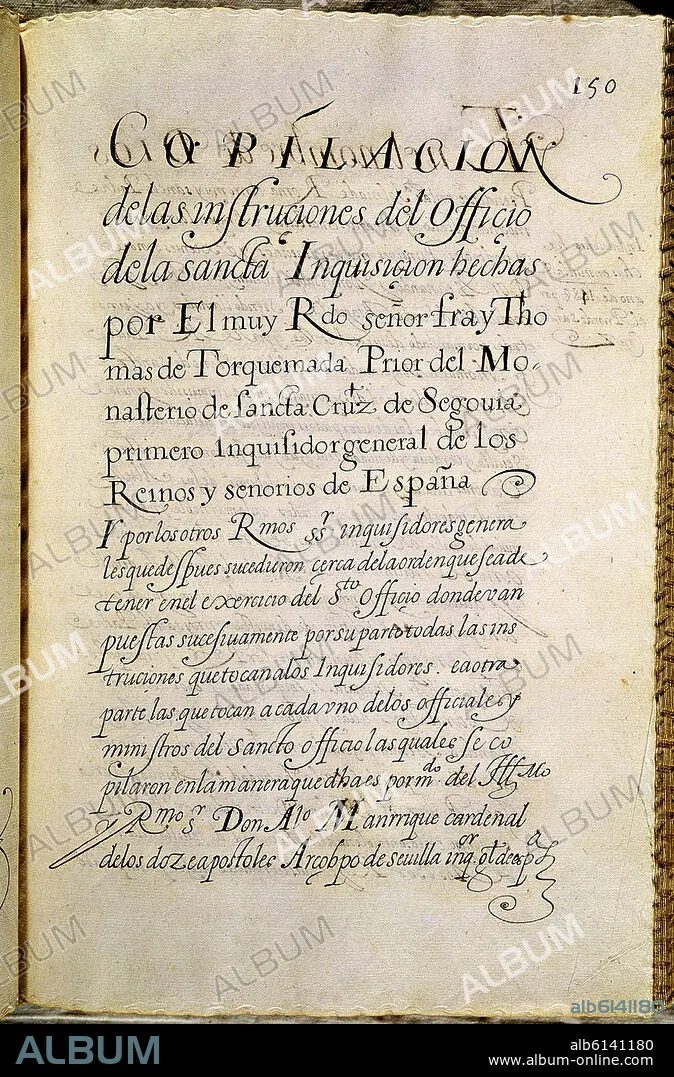 150
COPILACION
delas instruciones del Officio
dela sancta Inquisiçion hechas
por El muy Rdo señor fray Tho
mas de Torquemada Prior del Mo-
nasterio de sancta Cruz de Segouia
primero Inquisidor general de los
Reinos y señorios de España
Y por los otros Rmos ssr inquisidores genera
les que despues sucedieron çerca dela orden que sea de
tener enel exercicio del sto Officio donde van
puestas sucesiuamente por su parte todas las ins
truciones que tocan a los Inquisidores . e a otra
parte las que tocan a cada vno delos officiales y
ministros del sancto officio las quales se co
pilaron en la manera que dha es por mdo del Illmo
y Rmo sr Don Alo Manrrique cardenal
delos doze apostoles Arcobpo de seuilla inqor gl de espa
ALBUM
alb6141180
ALBUM
alb6141180
www.album-online.com